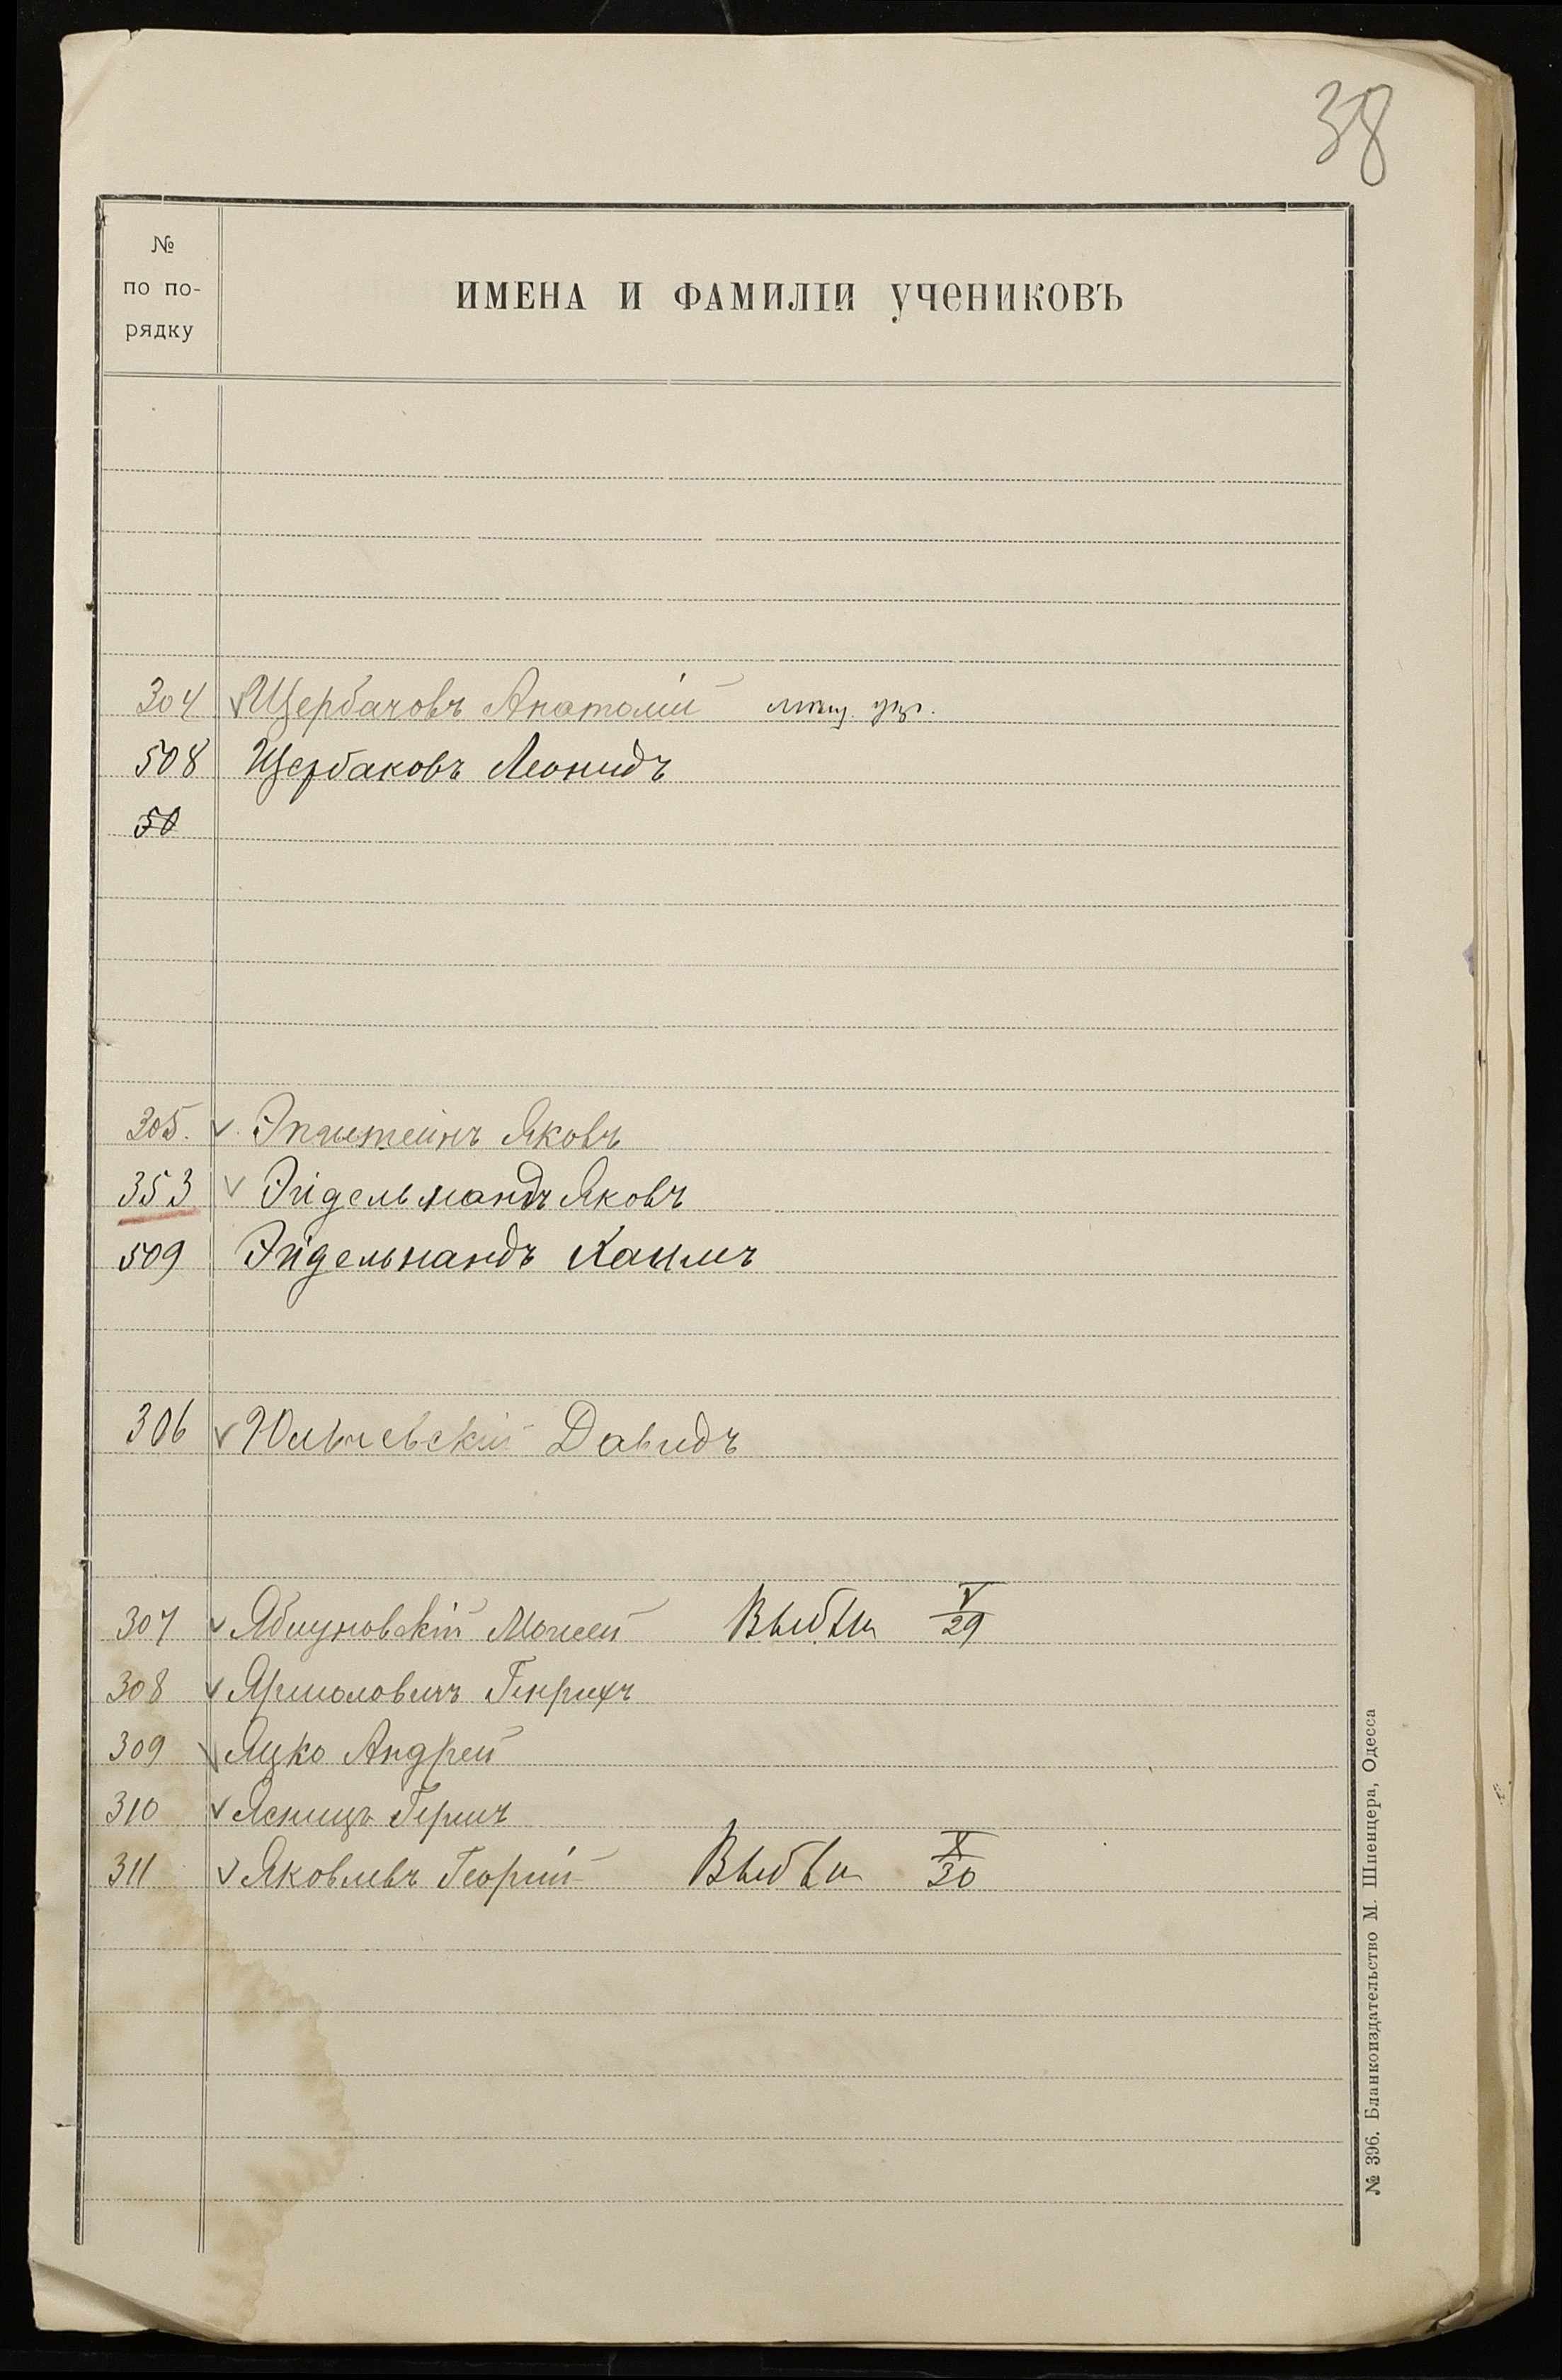 38
№
по по-
рядку
ИМЕНА И ФАМИЛІИ УЧЕНИКОВЪ
304 Щербачовъ Анатолій
508 Щербаковъ Леонидъ
50
305. Эпштейнъ Яковъ
353 Эйдельмандъ Яковъ
509 Эйдельнандъ
306 Давидъ
307 Моисей Выбылъ V/29
308 Ярмоловичъ Генрихъ
309 Яцко Андрей
310 Ясницъ Герш
311 Яковлевъ Георгій Выбылъ X/30
№ 396. Бланкоиздательство М. Шпенцера, Одесса